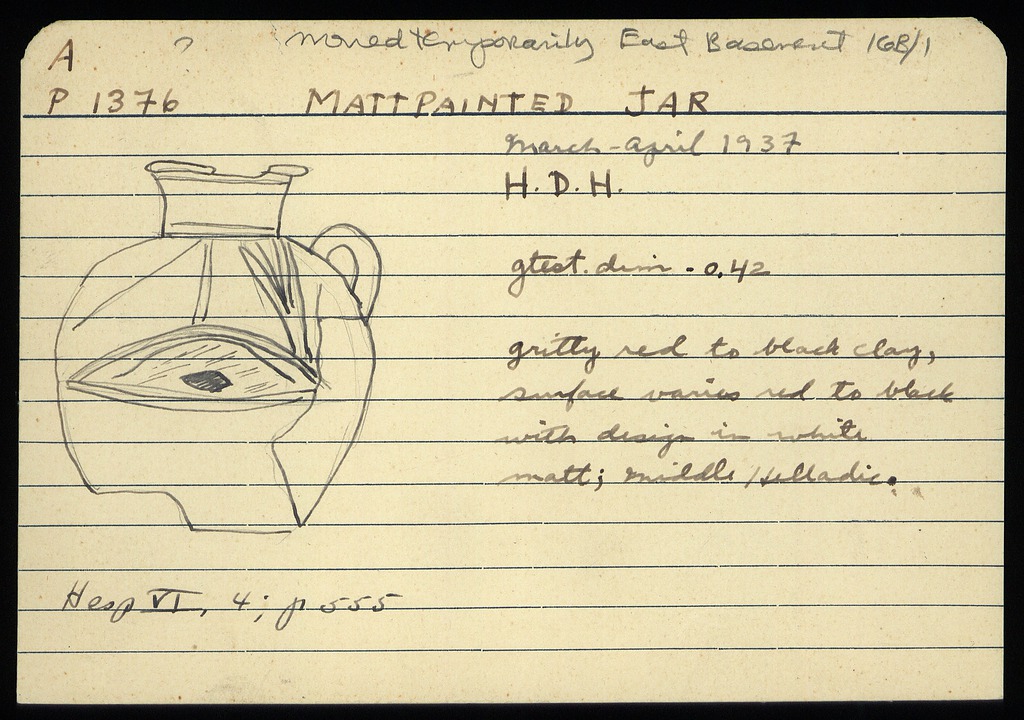 A ? moved temporarily East Basement 16B/1
P 1376 MATTPAINTED JAR
March - April 1937
H. D. H.
gtest. dim - 0,42
gritty red to black clay,
surface varies red to black
with design in white
matt; Middle Helladic.
Hesp VI, 4; p 555